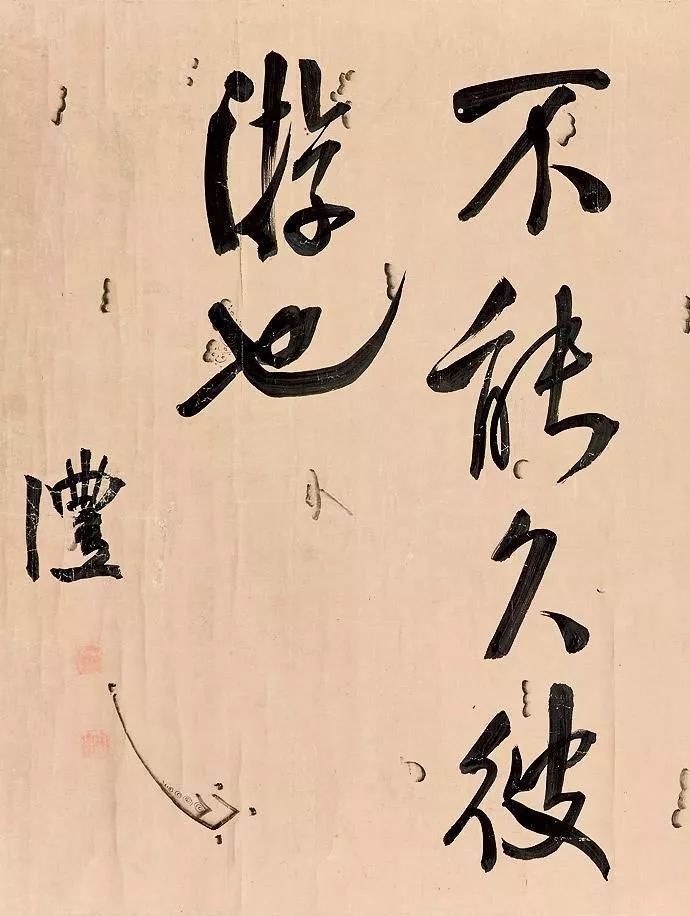 不能久彼
游也
澧